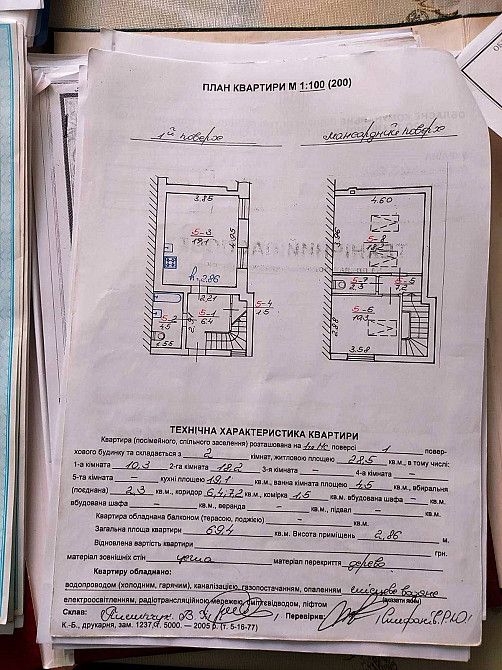 ПЛАН КВАРТИРИ М 1:100 (200)
1й поверх
мансардний поверх
3.85
4.60
5-3
19.1
5-8
18.2
h=2.86
2.21
5-7
2.3
5-5
7.2
5-2
4.5
5-1
6.4
5-4
1.5
5-6
10.3
2.88
1.55
3.58
ТЕХНІЧНА ХАРАКТЕРИСТИКА КВАРТИРИ
Квартира (посімейного, спільного заселення) розташована на 1му мс поверсі 1 повер-
хового будинку та складається з 2 кімнат, житловою площею 28.5 кв.м, в тому числі:
1-а кімната 10.3 кв.м. 2-га кімната 18.2 кв.м. 3-я кімната – кв.м. 4-а кімната –
5-та кімната – кв.м. кухні площею 19,1 кв.м., ванна кімната 4,5 кв.м., вбиральня
(поєднана) 2,3 кв.м., коридор 6,4, 7,2 кв.м., комірка 1,5 кв.м. вбудована шафа – кв.м.
вбудована шафа – кв.м., веранда – кв.м., підвал – кв.м.
Квартира обладнана балконом (терасою, лоджією) – кв.м.
Загальна площа квартири 69.4 кв.м. Висота приміщень 2,86 м.
Відновлена вартість квартири грн.
матеріал зовнішніх стін цегла матеріал перекриття дерево
Квартиру обладнано:
водопроводом (холодним, гарячим), каналізацією, газопостачанням, опаленням місцеве водяне
(вказати яким)
електроосвітленням, радіотрансляційною мережею, сміттєвідводом, ліфтом
Склав: Перевірив:
К.-Б., друкарня, зам. 1237, т. 5000. — 2005 р. (т. 5-16-77)